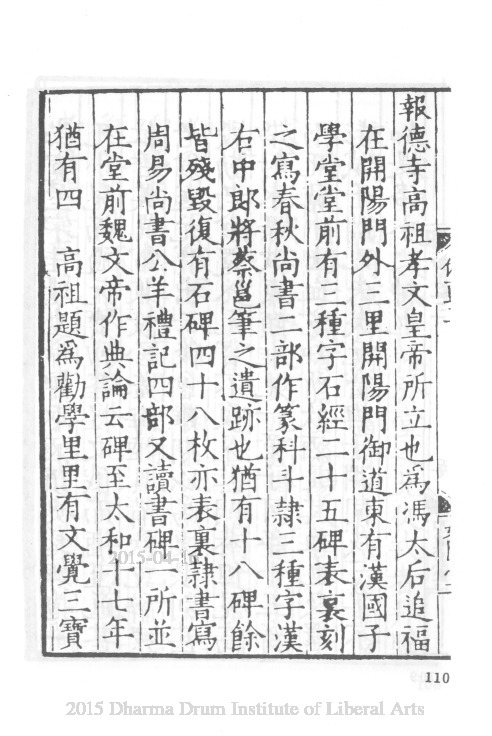 報德寺高祖孝文皇帝所立也爲馮太后追福
在開陽門外三里開陽門御道東有漢國子
學堂堂前有三種字石經二十五碑表裏刻
之寫春秋尚書二部作篆科斗隷三種字漢
右中郎將蔡邕筆之遺跡也猶有十八碑餘
皆殘毀復有石碑四十八枚亦表裏隷書寫
周易尚書公羊禮記四部又讀書碑一所並
在堂前魏文帝作典論云碑至太和十七年
猶有四　高祖題爲勸學里里有文覺三寶
2015-04-10
110
2015 Dharma Drum Institute of Liberal Arts